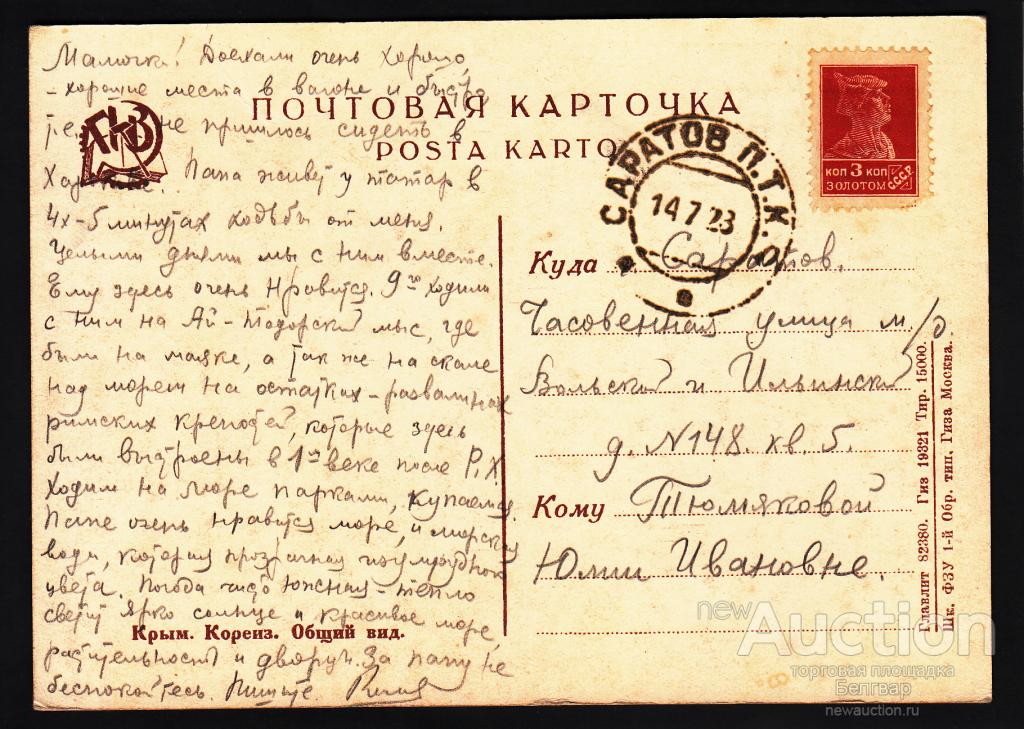 Мамочка! Доехали очень хорошо
- хорошие места в вагоне и быстро
т.е. не пришлось сидеть в
Папа живет у татар в
4х-5 минутах ходьбы от меня.
Целыми днями мы с ним вместе.
Ему здесь очень нравится. 9го ходили
с ним на Ай-Тодорский мыс, где
были на маяке, а так же на скале
над морем на остатках-развалинах
римских крепостей, которые здесь
были выстроены в 1м веке после Р.Х.
Ходим на море парками, купаемся.
Папе очень нравится море, и морская
вода, которая прозрачная изумрудного
цвета. Погода чисто Южная - тепло
светит ярко солнце и красивое море
растительность и дворцы. За папу не
беспокойтесь. Пишите
ГИЗ
ПОЧТОВАЯ КАРТОЧКА
POSTA KARTO
САРАТОВ П.Т.К.О.
14 7 28
КОП 3 КОП
ЗОЛОТОМ
СССР
Куда Саратов.
Часовенная улица м/д.
Вольской и Ильинской
д. N148. кв. 5.
Кому Тюмяковой
Юлии Ивановне.
Крым. Кореиз. Общий вид.
Главлит 82380. Гиз 19321 Тир. 15000.
Шк. ФЗУ 1-й Обр. тип. Гиза Москва.
newAuction
торговая площадка
Белгвар
newauction.ru